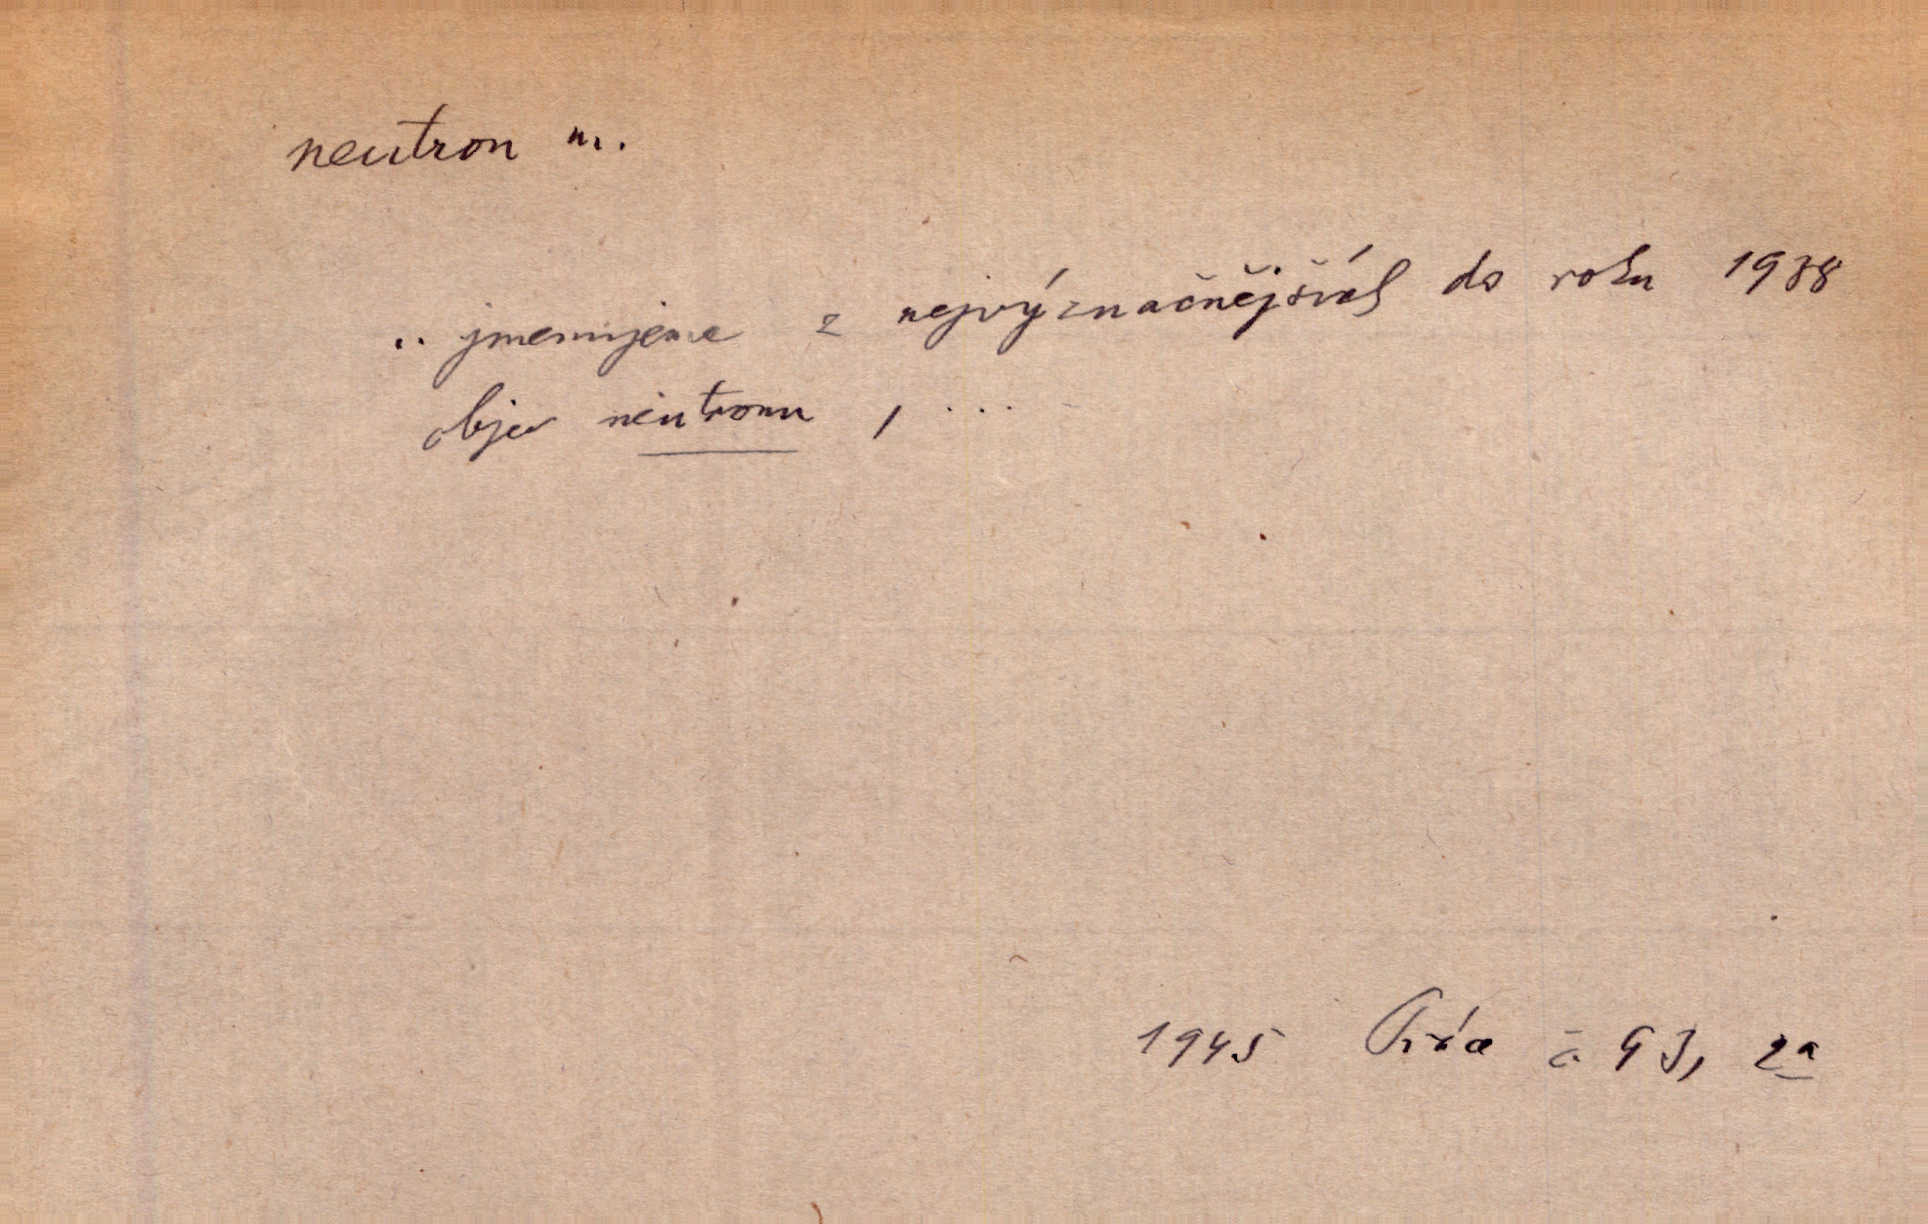 neutron m.
.. jmenujeme z nejvýznačnějších do roku 1938
objev neutronu , ...
1945 Práce č. 93, 2a